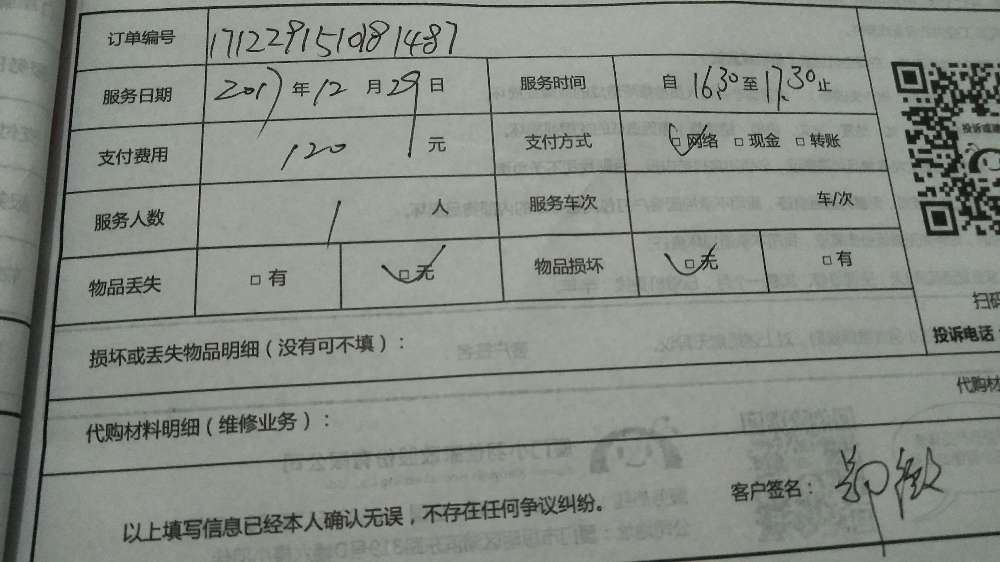 订单编号 171229151081487
服务日期 2017年12月29日 服务时间 自16:30至17:30止
支付费用 120 元 支付方式 □网络 □现金 □转账
投诉或建
服务人数 1 人 服务车次 车/次
物品丢失 □有 □无 物品损坏 □无 □有
扫码
损坏或丢失物品明细（没有可不填）：
投诉电话
代购材
代购材料明细（维修业务）：
客户签名：
以上填写信息已经本人确认无误，不存在任何争议纠纷。